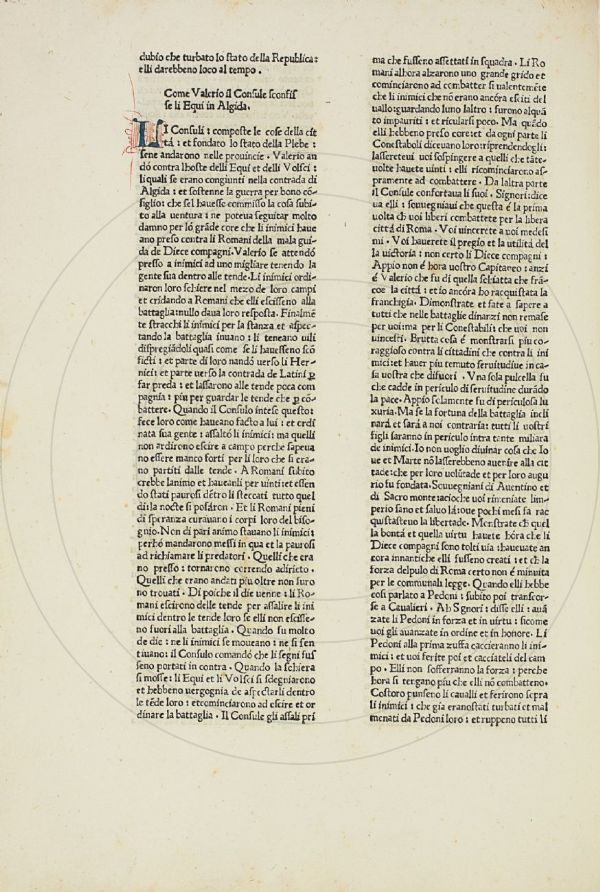 dubio che turbato lo stato della Republica:
elli darebbeno loco al tempo.
Come Valerio il Consule sconfis
se li Equi in Algida.
LI Consuli: composte le cose della cit
tá: et fondato lo stato della Plebe:
sene andarono nelle prouincie. Valerio an
dó contra lhoste delli Equi et delli Volsci:
li quali se erano congiunti nella contrada di
Algida: et sostenne la guerra per bono cō
siglio: che sel hauesse commisso la cosa subi
to alla uentura: ne poteua seguitar molto
damno per ló grāde core che li inimici haue
ano preso contra li Romani della mala gui
da de Diece compagni. Valerio se attendó
presso a inimici ad uno migliare tenendo la
gente sua dentro alle tende. Li inimici ordi
naron loro schiere nel mezo de loro campi
et cridando a Romani che elli escisseno alla
battaglia: nullo daua loro resposta. Finalmē
te stracchi li inimici per la stanza et aspec
tando la battaglia inuano: li teneano uili
dispregiādoli quasi come se li hauesseno scō
ficti: et parte di loro nandó uerso li Her
nici: et parte uerso la contrada de Latini ꝑ
far preda: et lassarono alle tende poca com
pagnia: piu per guardar le tende che ꝑ cō
battere. Quando il Consulo intese questo:
fece loro come haueano facto a lui: et ordi
nata sua gente: assaltó li inimici: ma quelli
non ardirono escire a campo perche sapeua
no essere manco forti per li loro che si era
no partiti dalle tende. A Romani subito
crebbe lanimo et haueanli per uinti: et essen
do stati paurosi dētro li steccati tutto quel
di: la nocte si posáron. Et li Romani pieni
di speranza curauano i corpi loro del biso
gnio. Non di pari animo stauano li inimici:
perhó mandarono messi in qua et la paurosi
ad richiamare li predatori. Quelli che era
no presso: tornarono correndo adirieto.
Quelli che erano andati piu oltre non furo
no trouati. Di poiche il die uenne: li Ro
mani escirono delle tende per assalire li ini
mici dentro le tende loro se elli non escisse
no fuori alla battaglia. Quando fu molto
de die: ne li inimici se moueano: ne si sen
tiuano: il Consulo comandó che li segni fus
seno portati in contra. Quando la schiera
si mosse: li Equi et li Volsci si sdegniarono
et hebbeno uergognia de aspectarli dentro
le tēde loro: et cominciarono ad escire et or
dinare la battaglia. Il Consule gli assalí pri
ma che fusseno assettati in squadra. Li Ro
mani alhora alzarono uno grande grido et
cominciorono ad combatter si ualentemēte
che li inimici che nō erano ancóra esciti del
uallo: guardando luno laltro: furono alquā
to impauriti: et ricularsi poco. Ma quādo
elli hebbeno preso core: et da ogni parte li
Conestaboli diceuano loro: riprendendogli:
lassereteui uoi sospingere a quelli che tāte
uolte hauete uinti: elli ricominciorono as
pramente ad combattere. Da laltra parte
il Consule confortaua li suoi. Signori: dice
ua elli: souuegniaui che questa é la prima
uolta ch uoi liberi combattete per la libera
cittá di Roma. Voi uincerete a uoi medesi
mi. Voi hauerete il pregio et la utilitá del
la uictoria: non certo li Diece compagni:
Appio non é hora uostro Capitaneo: anzi
é Valerio che fu di quella schiatta che frā-
coe la cittá: et io ancóra ho racquistata la
franchigia. Dimonstrate et fate a sapere a
tutti che nelle battaglie dinanzi non remase
per uoi: ma per li Conestabili: che uoi non
uincesti. Brutta cosa é monstrarsi piu co-
raggioso contra li cittadini che contra li ini
mici: et hauer piu temuto seruitudine in ca-
sa uostra che difuori. Vna sola pulcella fu
che cadde in periculo di seruitudine durādo
la pace. Appio solamente fu di periculosa lu
xuria. Ma se la fortuna della battaglia incli
nard et sará a noi contraria: tutti li uostri
figli saranno in periculo intra tante miliara
de inimici. Io non uoglio diuinar cosa che Io
ue et Marte nō lasserebbeno auenire alla cit
tade: che per loro uolútade et per loro augu
rio fu fondata. Souuegniaui di Auentino et
di Sacro monte: accioche uoi rimeniate lim-
perio sano et saluo lá: oue pochi mesi fa rac
quistasteuo la libertade. Monstrate ch quel
la bontá et quella uirtu hauete hóra che li
Diece compagni sono tolti uia: haueuate an
cora innantiche elli fusseno creati: et ch la
forza delpulo di Roma certo non é minuita
per le communali legge. Quando elli hebbe
cosi parlato a Pedoni: subito poi transcor-
se a Caualieri. Ah Signori: disse elli: auā
zate li Pedoni in forza et in uirtu: sicome
uoi gli auanzate in ordine et in honore. Li
Pedoni alla prima zuffa caccieranno li ini-
mici: et uoi ferite poi et cacciateli del cam
po. Elli non sofferranno la forza: perche
hora si tengano piu che elli nō combatteno.
Costoro punseno li caualli et ferirono sopra
li inimici: che gia erano stati turbati et mal
menati da Pedoni loro: et ruppeno tutti li